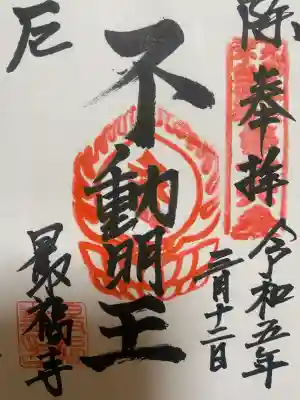 除
奉拝
令和五年
三月十二日
不動明王
厄
最福寺